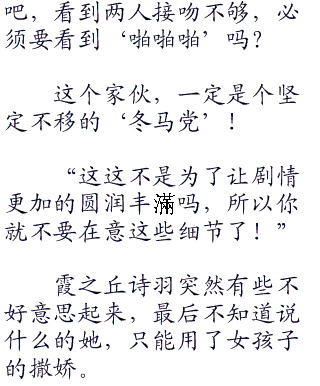 吧，看到两人接吻不够，必
须要看到‘啪啪啪’吗？
这个家伙，一定是个坚
定不移的‘冬马党’！
“这这不是为了让剧情
更加的圆润丰滿吗，所以你
就不要在意这些细节了！”
霞之丘诗羽突然有些不
好意思起来，最后不知道说
什么的她，只能用了女孩子
的撒娇。